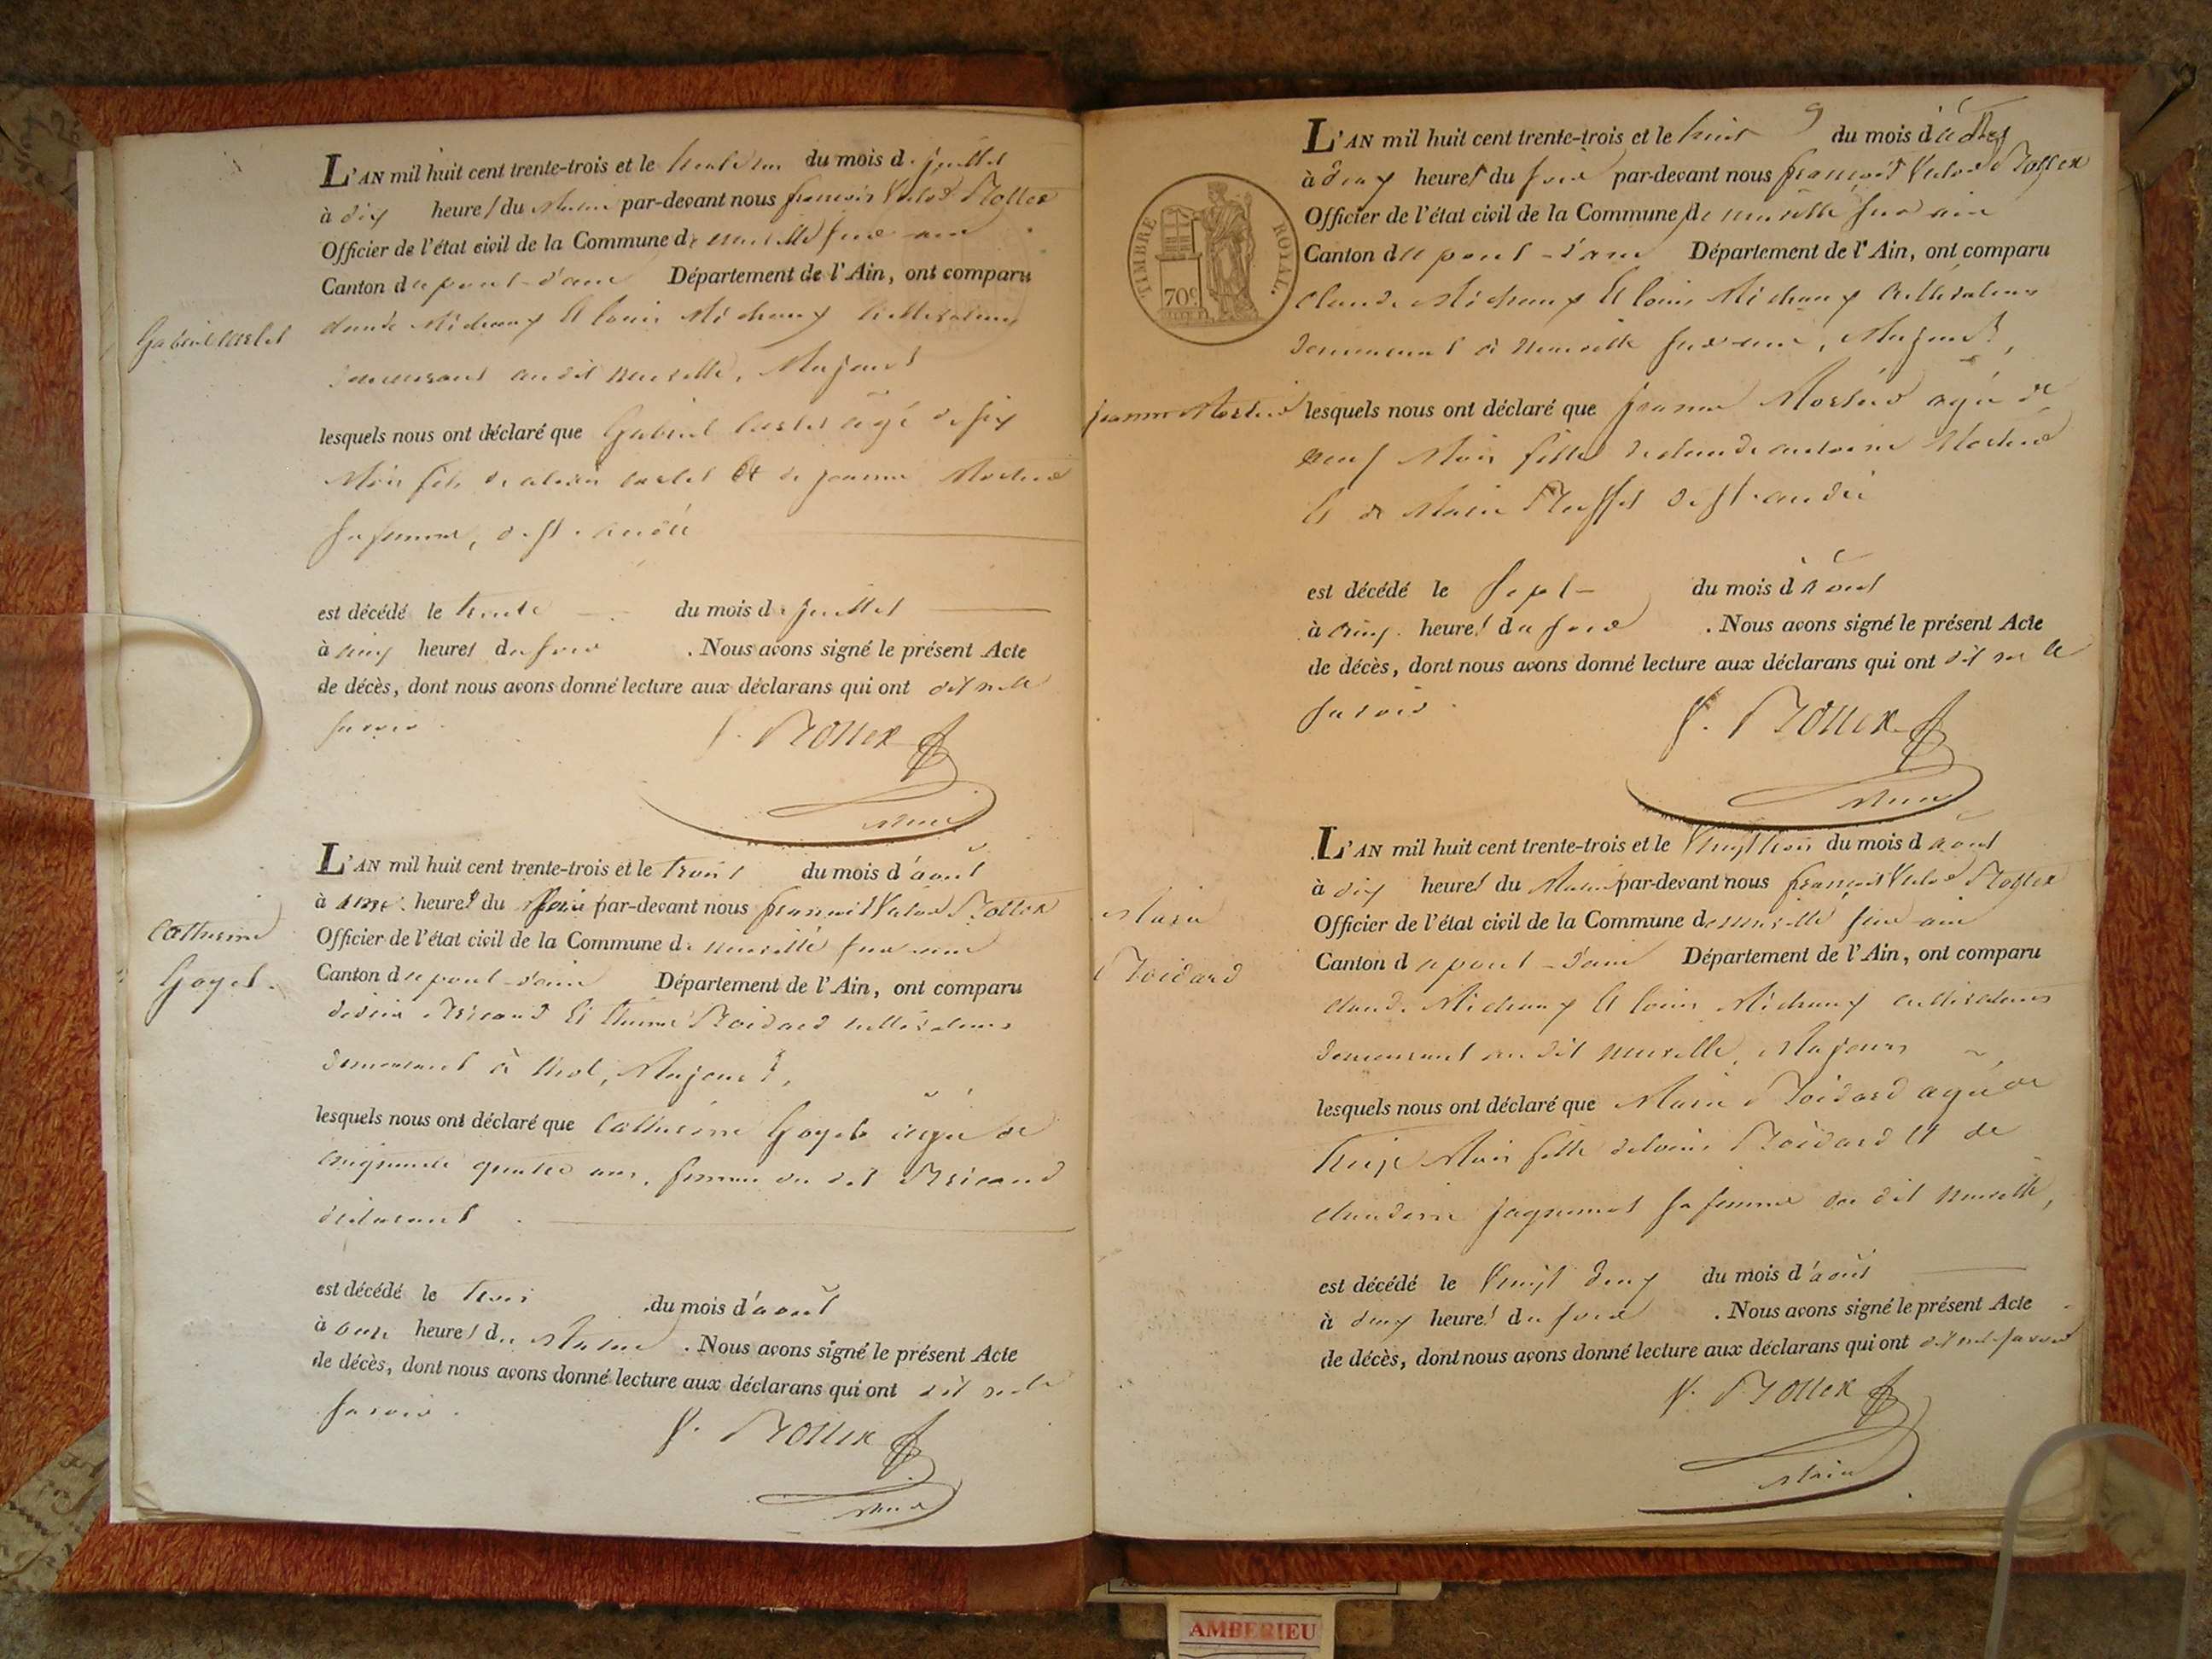 L'AN mil huit cent trente-trois et le trente un du mois de juillet
à dix heures du matin par-devant nous françois Victor
Officier de l'état civil de la Commune de neuville sur ain
Canton du pont-d'ain Département de l'Ain, ont comparu
Claude Michaux et louis Michaux cultivateurs
demeurant au dit neuville, Majeurs
lesquels nous ont déclaré que Gabriel âgé de six
Mois fils de et de jeanne
sa femme, de st. andré
est décédé le trente du mois de juillet
à cinq heures du soir . Nous avons signé le présent Acte
de décès, dont nous avons donné lecture aux déclarans qui ont dit ne le
savoir.
Maire
Gabriel
L'AN mil huit cent trente-trois et le trois du mois d'août
à heures du soir par-devant nous françois Victor
Officier de l'état civil de la Commune de neuville sur ain
Canton du pont-d'ain Département de l'Ain, ont comparu
et Boidard cultivateurs
demeurant à Majeurs,
lesquels nous ont déclaré que Catherine Goyet âgée de
cinquante quatre ans, femme du dit
déclarant.
est décédé le trois du mois d'août
à onze heures du Matin . Nous avons signé le présent Acte
de décès, dont nous avons donné lecture aux déclarans qui ont dit ne le
savoir.
Maire
Catherine
Goyet.
TIMBRE ROYAL.
70c
L'AN mil huit cent trente-trois et le huit du mois d'août
à deux heures du soir par-devant nous françois Victor
Officier de l'état civil de la Commune de neuville sur ain
Canton du pont-d'ain Département de l'Ain, ont comparu
Claude Michaux et louis Michaux cultivateurs
demeurant à neuville sur ain, Majeurs,
lesquels nous ont déclaré que jeanne âgée de
neuf Mois fille de claude antoine
et de Marie de st. andré
est décédé le sept du mois d'août
à cinq heures du soir . Nous avons signé le présent Acte
de décès, dont nous avons donné lecture aux déclarans qui ont dit ne le
savoir.
Maire
jeanne
L'AN mil huit cent trente-trois et le Vingt trois du mois d'août
à dix heures du Matin par-devant nous françois Victor
Officier de l'état civil de la Commune de neuville sur ain
Canton du pont-d'ain Département de l'Ain, ont comparu
Claude Michaux et louis Michaux cultivateurs
demeurant au dit neuville, Majeurs
lesquels nous ont déclaré que Marie Boidard âgée de
treize Mois fille de louis Boidard et de
claudine jaquemet sa femme du dit neuville,
est décédé le Vingt deux du mois d'août
à deux heures du soir . Nous avons signé le présent Acte
de décès, dont nous avons donné lecture aux déclarans qui ont dit ne le savoir
Maire
Marie
Boidard
AMBERIEU